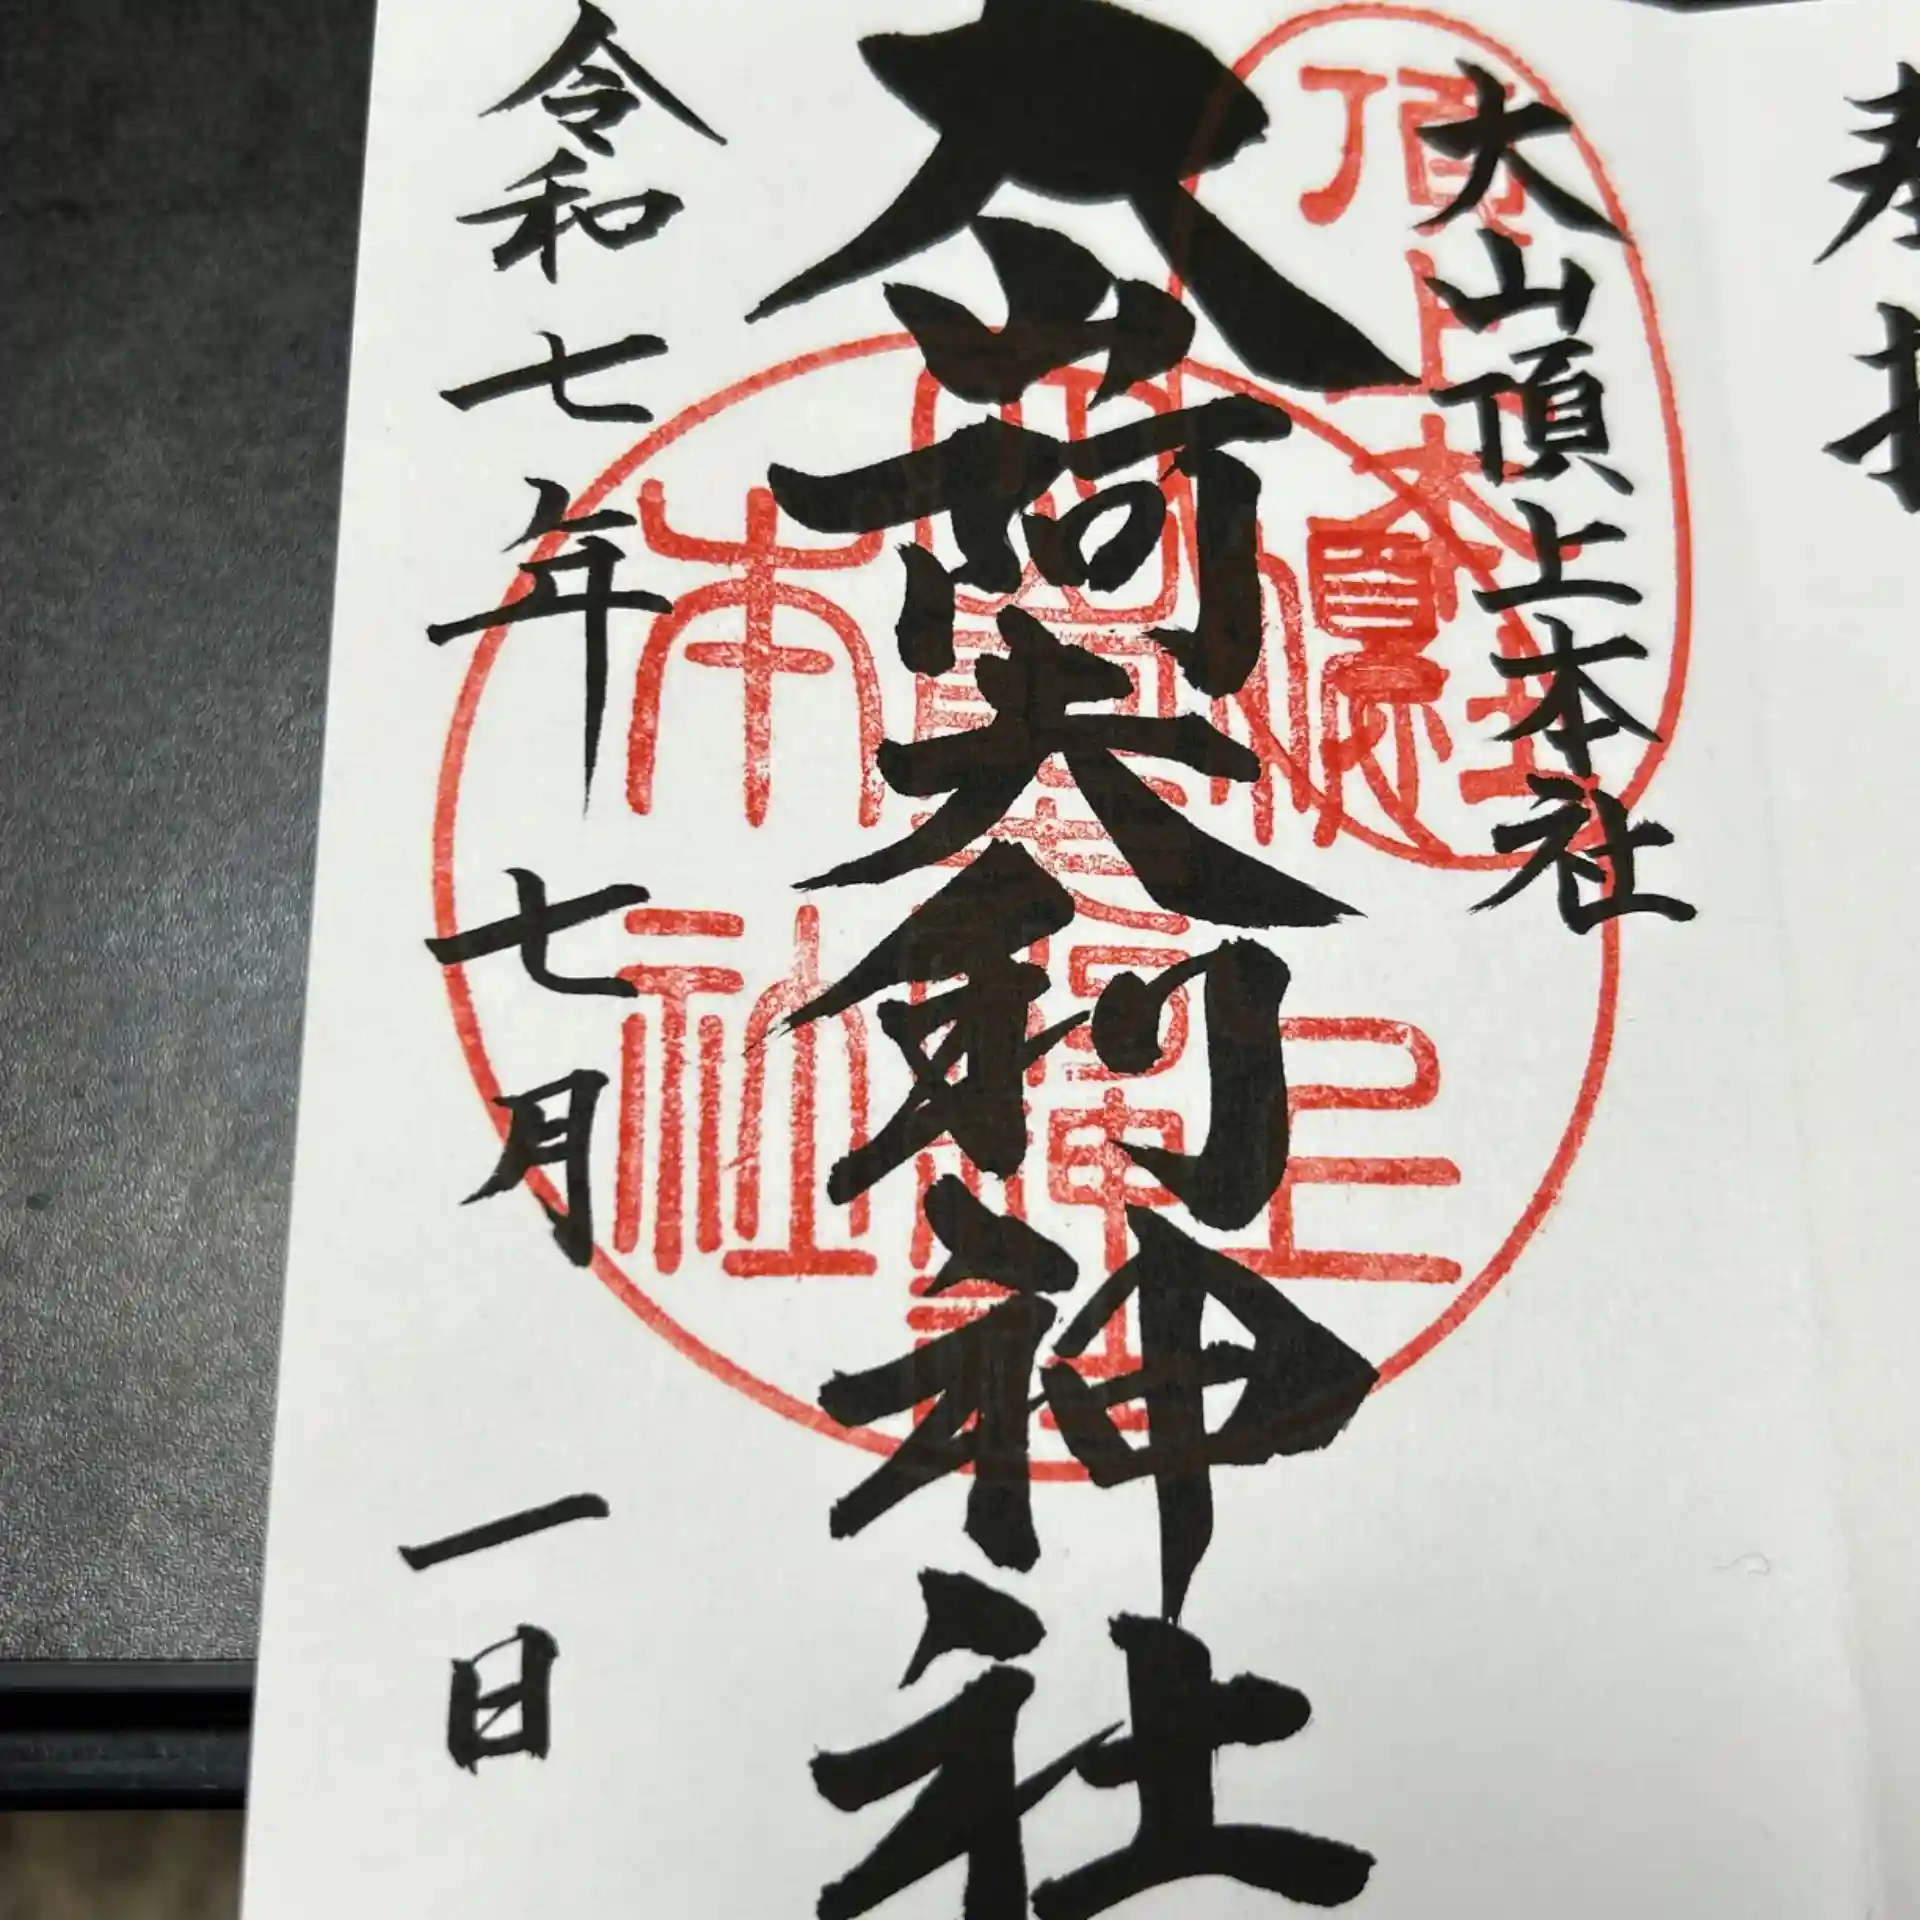 奉拝
大山頂上本社
大山阿夫利神社
令和七年七月一日